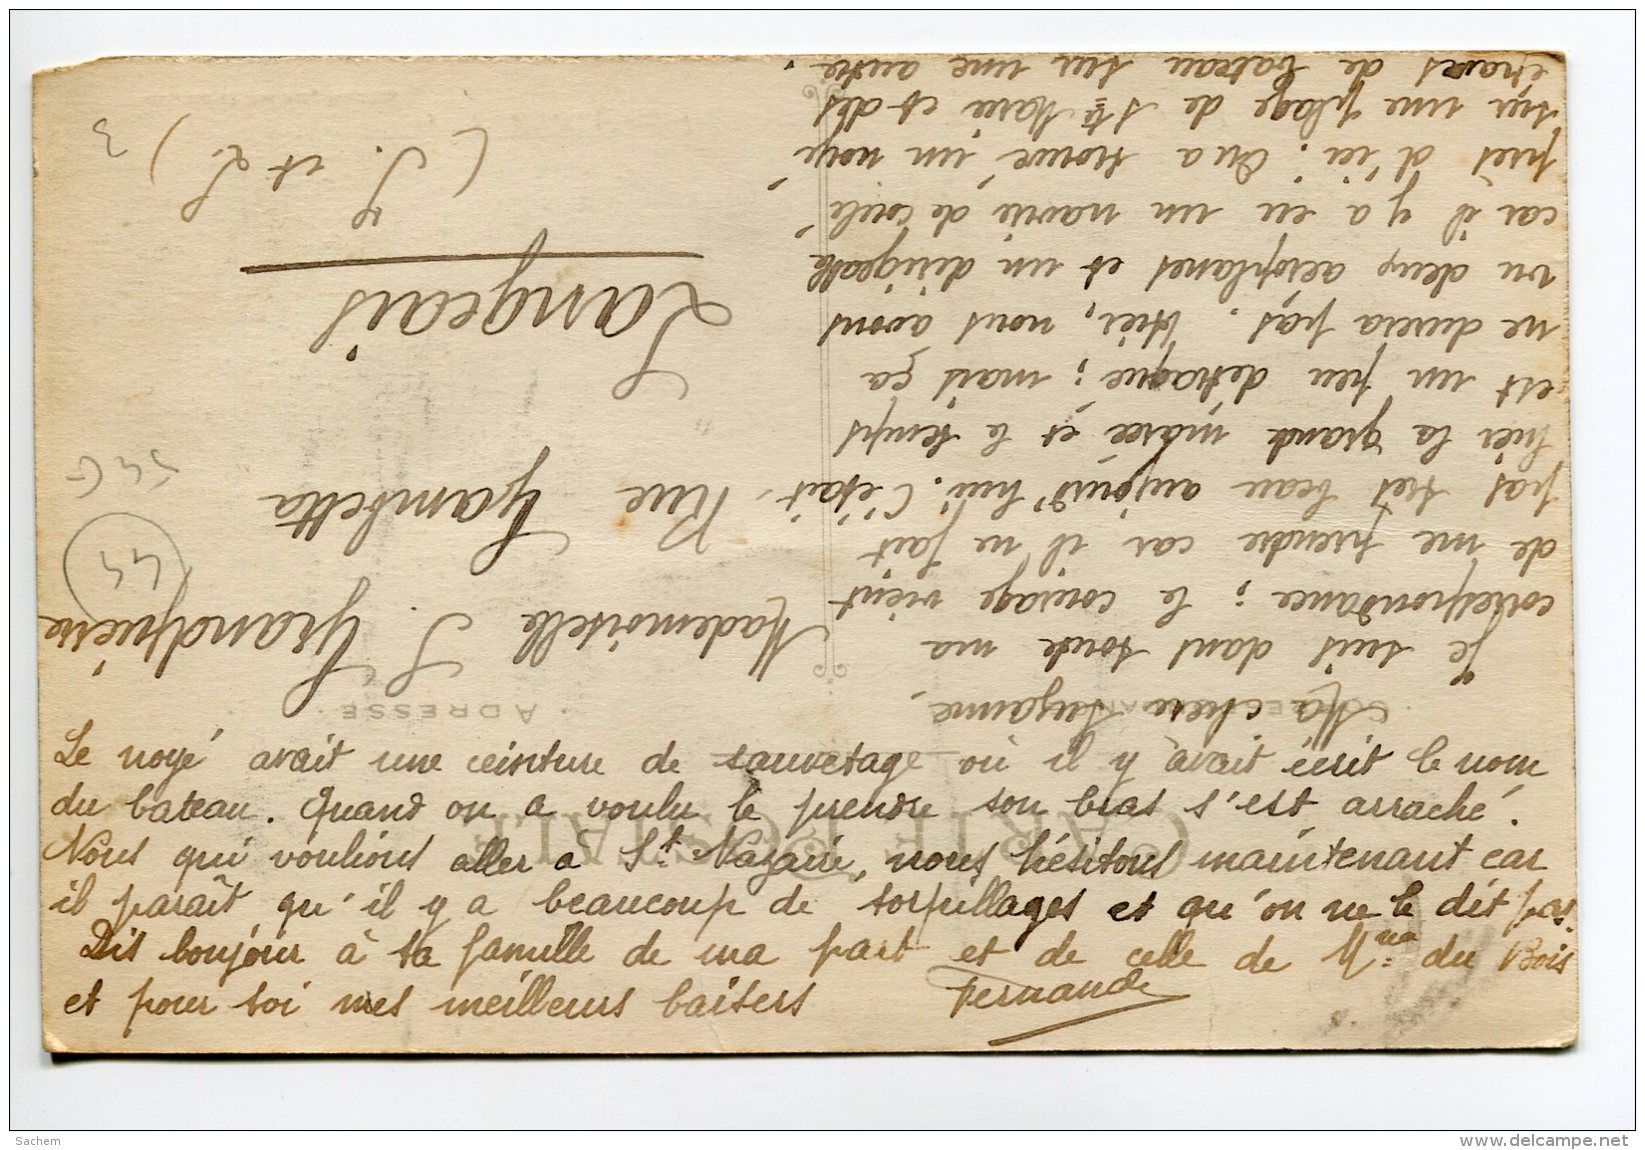 CARTE POSTALE
CORRESPONDANCE
ADRESSE
Ma chère Suzanne,
Je suis dans toute ma
correspondance ; le courage vient
de me prendre car il ne fait
pas très beau aujourd'hui. C'était
hier la grande marée et le temps
est un peu détraqué ; mais ça
ne durera pas. Hier, nous avons
vu deux aéroplanes et un dirigeable
car il y a eu un navire de coulé
près d'ici. On a trouvé un noyé
sur une plage de Ste Marie et des
épaves de bateau sur une autre.
Mademoiselle S. Grandpierre
Rue Gambetta
Langeais
(I. et L.)
Le noyé avait une ceinture de sauvetage où il y avait écrit le nom
du bateau. Quand on a voulu le prendre son bras s'est arraché.
Nous qui voulions aller à St Nazaire, nous hésitons maintenant car
il paraît qu'il y a beaucoup de torpillages et qu'on ne le dit pas.
Dis bonjour à ta famille de ma part et de celle de Mme du Bois
et pour toi mes meilleurs baisers Fernande
44
3
Sachem
www.delcampe.net